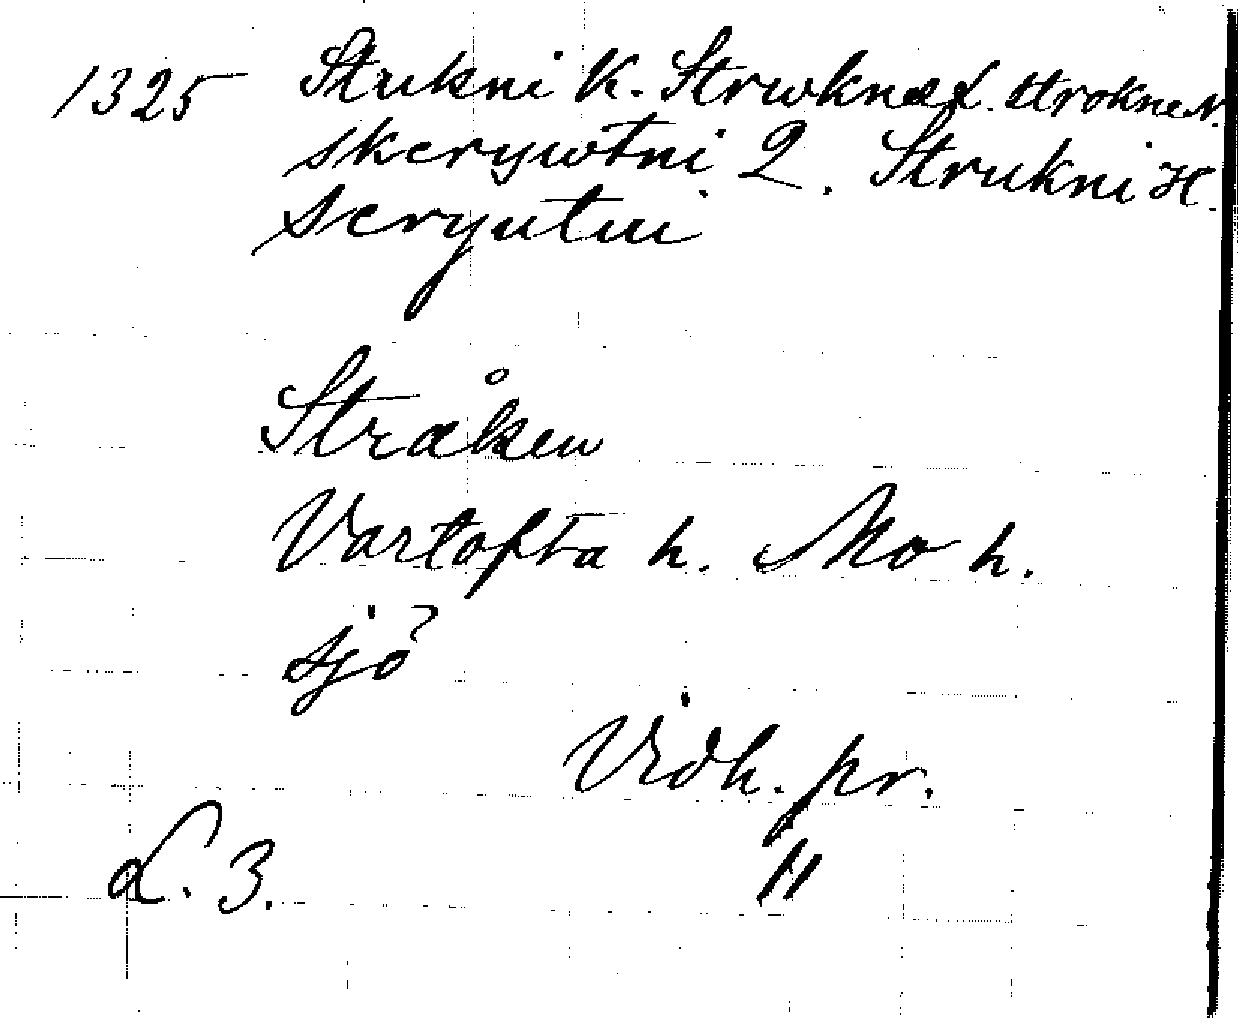 1325 Strukni K. Strwknæ L. strokne N.
skerywtni Q. Strukni H.
scryutni
Stråken
Vartofta h. Mo h.
sjö
Vidh. pr.
L. 3. "